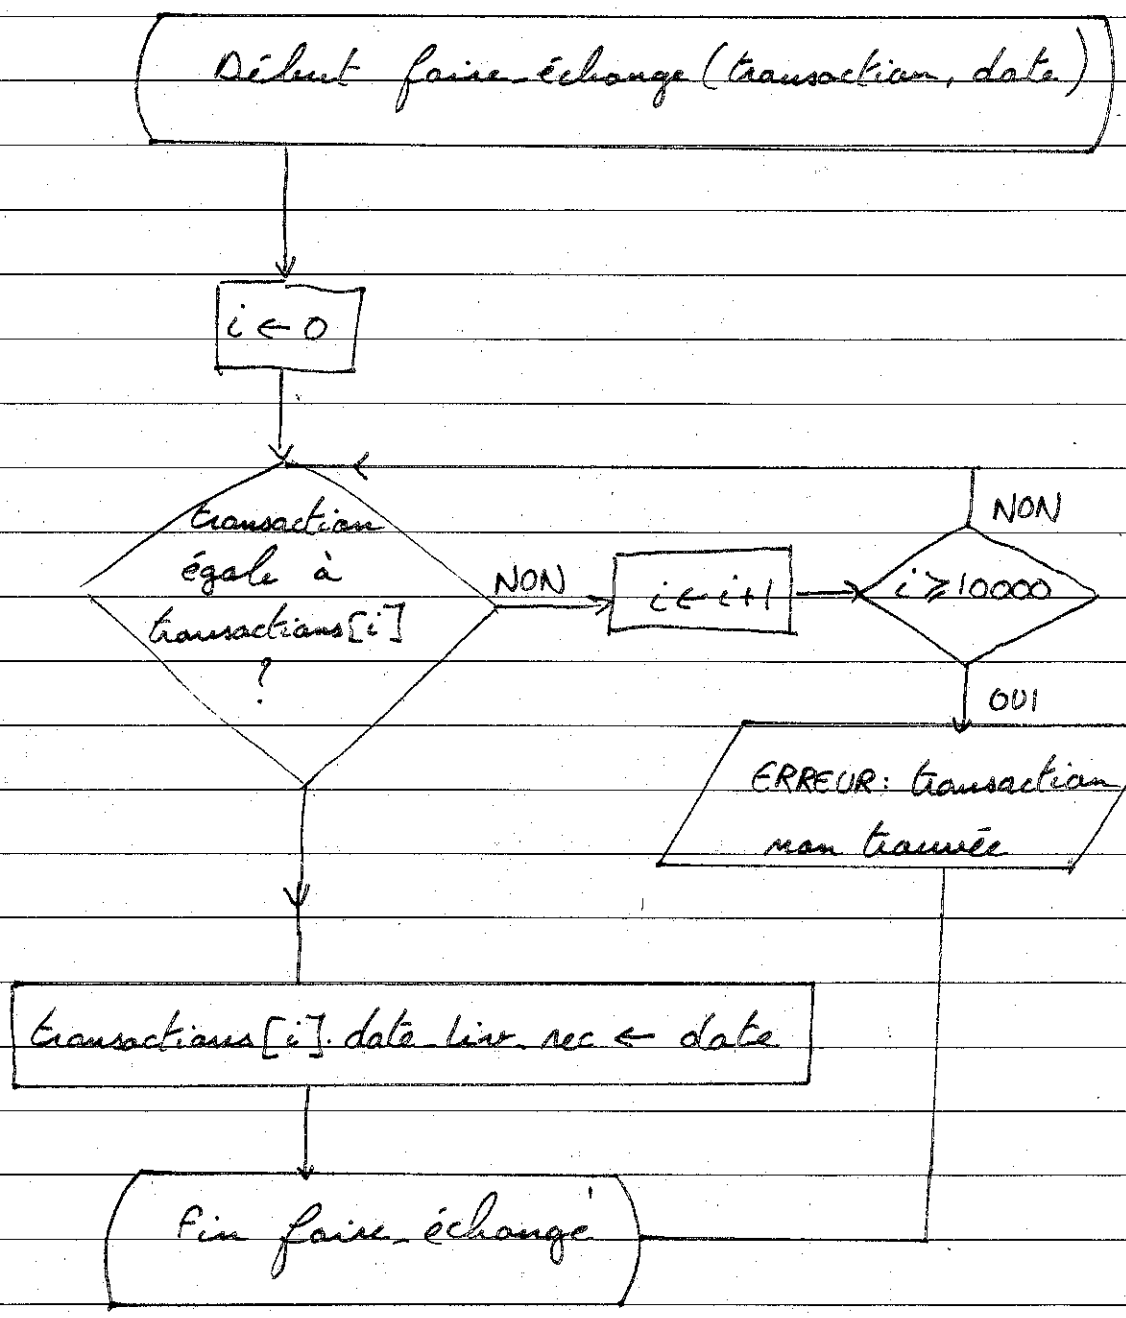 Début faire_échange (transaction, date)
i ← 0
transaction
égale à
transactions[i]
?
NON
i ← i+1
i ⩾ 10000
NON
OUI
ERREUR: transaction
non trouvée
transactions[i].date_liv_rec ← date
Fin faire_échange